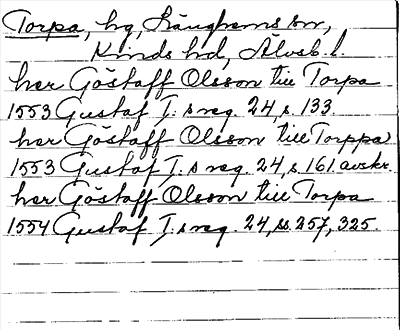 Torpa, hg, Länghems sn,
Kinds hd, Älvsb. l.
her Göstaff Olsson till Torpa
1553 Gustaf I:s reg. 24, s. 133.
her Göstaff Olsson till Torppa
1553 Gustaf I:s reg. 24, s. 161 avskr.
her Göstaff Olsson till Torpa
1554 Gustaf I:s reg. 24, ss. 257, 325.